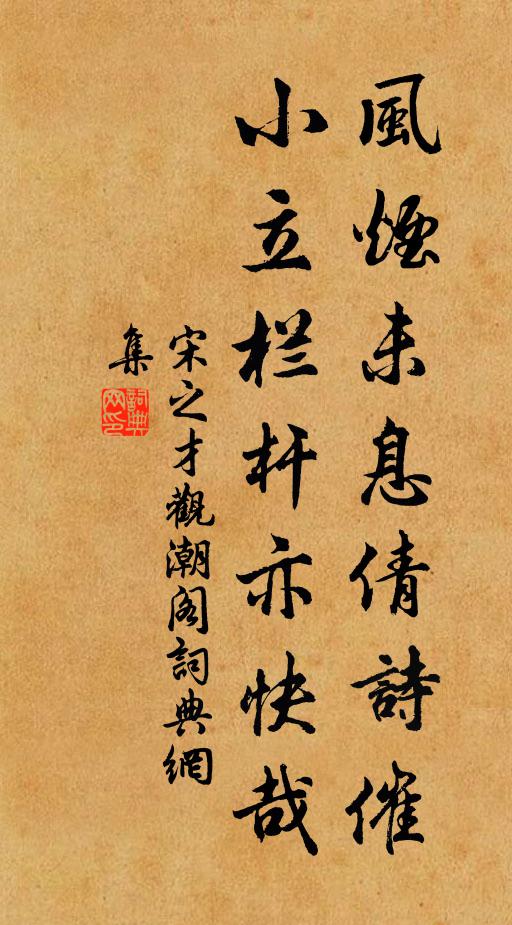 風煙未息倩詩催
小立栏杆亦快哉
宋之才觀潮阁詞典網
集
詞典網印